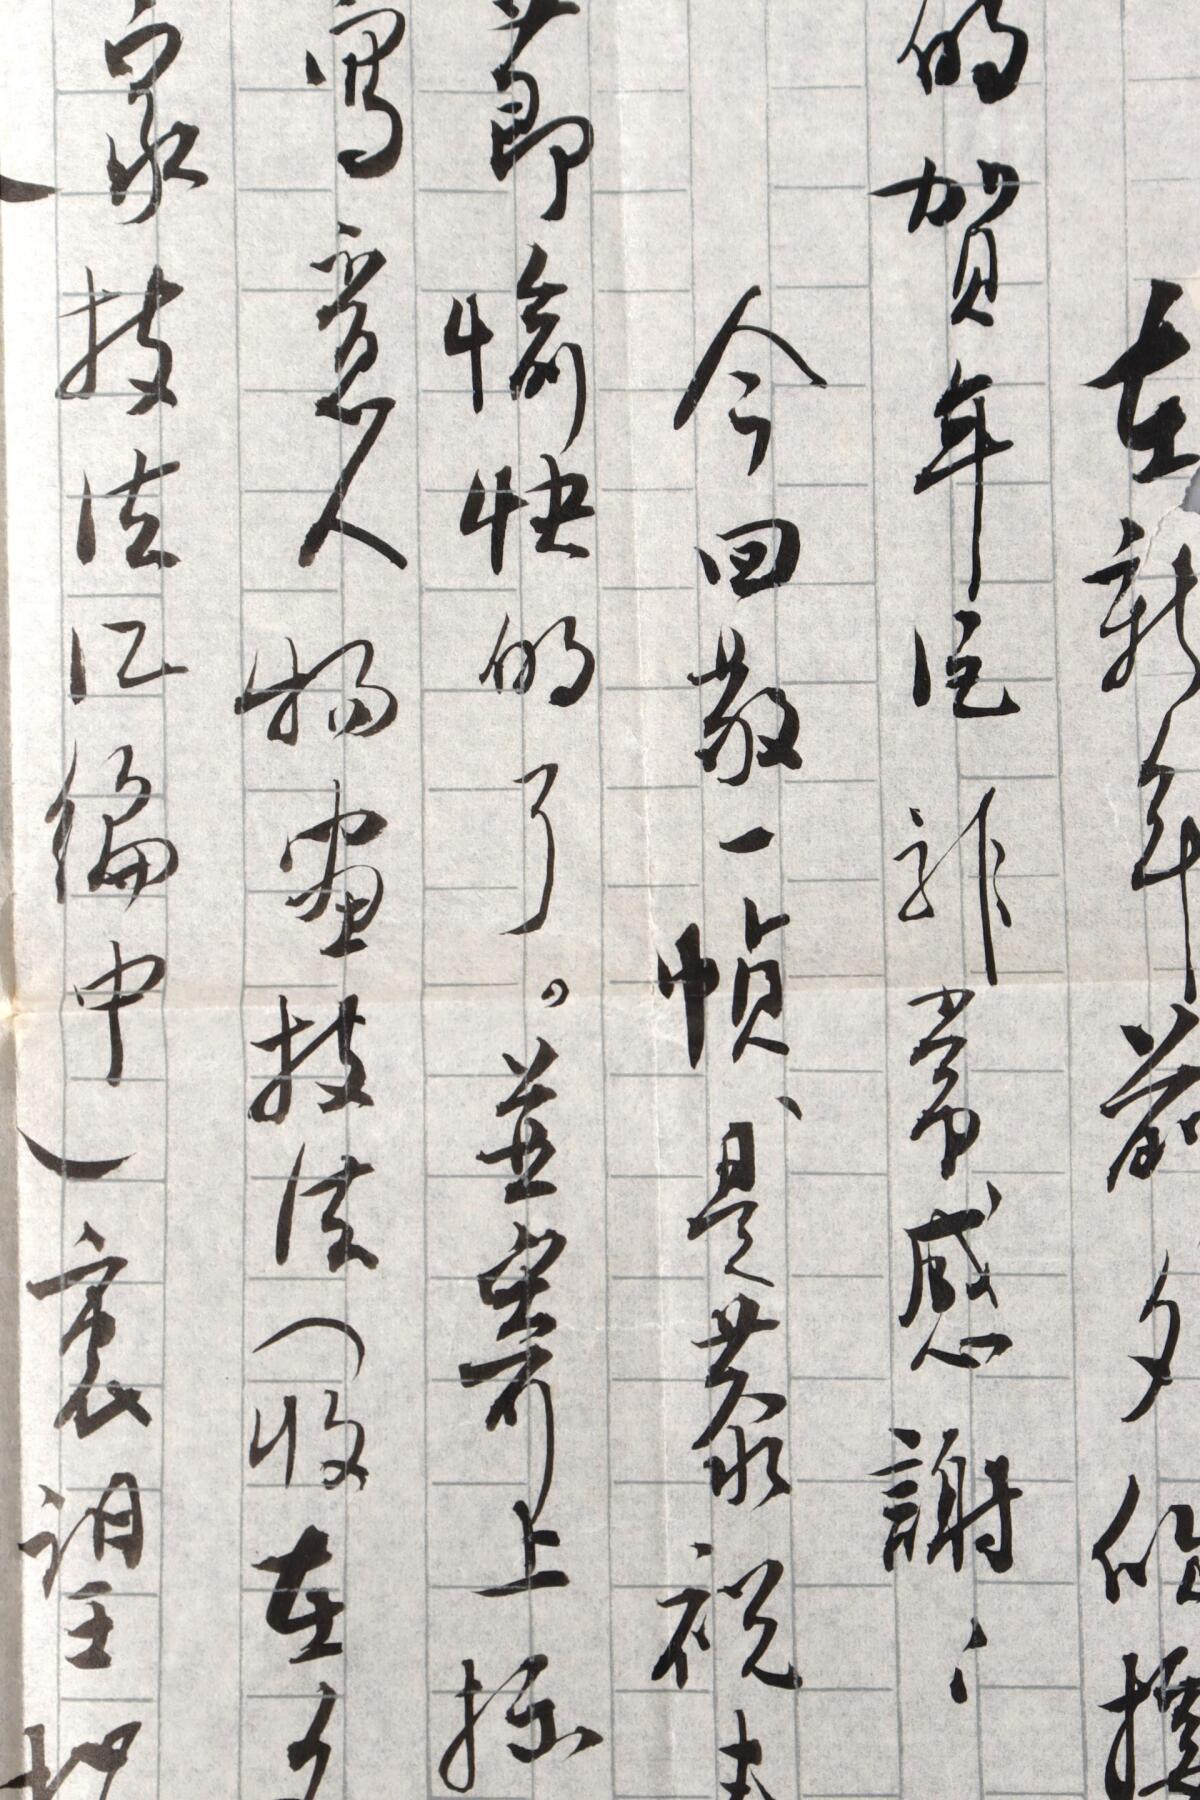 在新年前夕收
的賀年片非常感謝！
今回敬一幀、是恭祝
節愉快的了。並寄上拙
寫意人物畫技法（收在
家技法汇编中）衷望